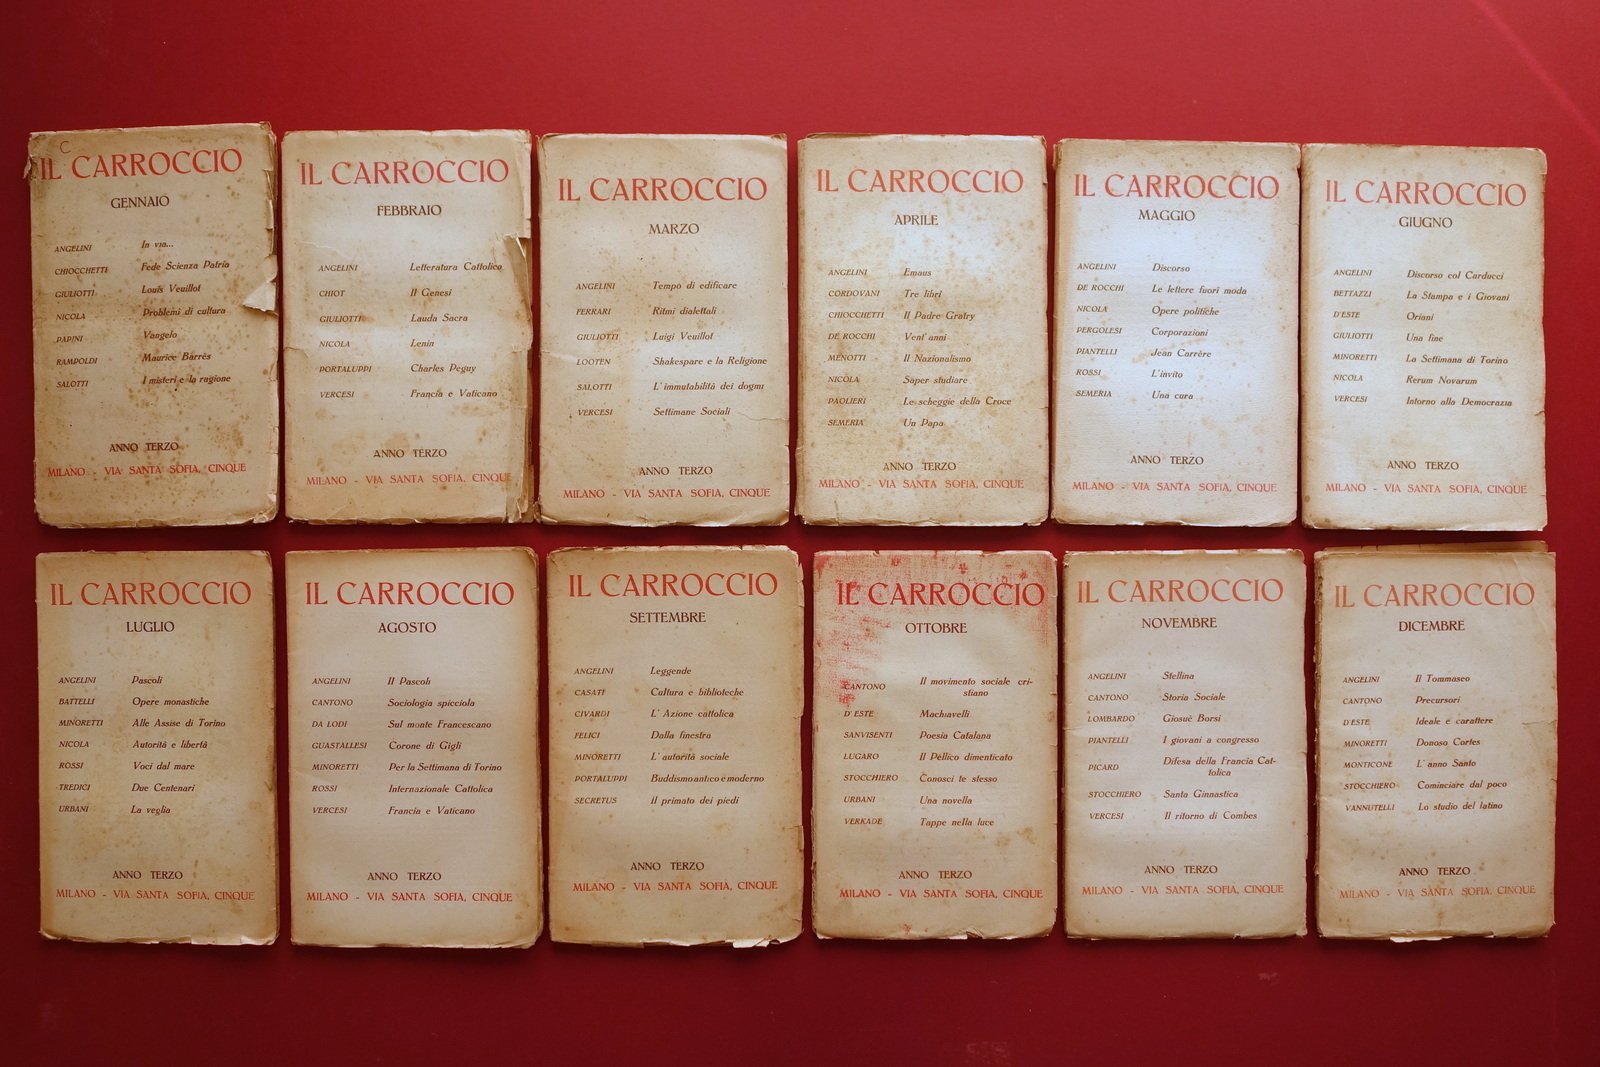 C
IL CARROCCIO
GENNAIO
ANGELINI In via...
CHIOCCHETTI Fede Scienza Patria
GIULIOTTI Louis Veuillot
NICOLA Problemi di cultura
PAPINI Vangelo
RAMPOLDI Maurice Barrès
SALOTTI I misteri e la ragione
ANNO TERZO
MILANO - VIA SANTA SOFIA, CINQUE
IL CARROCCIO
FEBBRAIO
ANGELINI Letteratura Cattolica
CHIOT Il Genesi
GIULIOTTI Lauda Sacra
NICOLA Lenin
PORTALUPPI Charles Peguy
VERCESI Francia e Vaticano
ANNO TERZO
MILANO - VIA SANTA SOFIA, CINQUE
IL CARROCCIO
MARZO
ANGELINI Tempo di edificare
FERRARI Ritmi dialettali
GIULIOTTI Luigi Veuillot
LOOTEN Shakespare e la Religione
SALOTTI L'immutabilità dei dogmi
VERCESI Settimane Sociali
ANNO TERZO
MILANO - VIA SANTA SOFIA, CINQUE
IL CARROCCIO
APRILE
ANGELINI Emaus
CORDOVANI Tre libri
CHIOCCHETTI Il Padre Gratry
DE ROCCHI Vent'anni
MENOTTI Il Nazionalismo
NICOLA Saper studiare
PAOLIERI Le scheggie della Croce
SEMERIA Un Papa
ANNO TERZO
MILANO - VIA SANTA SOFIA, CINQUE
IL CARROCCIO
MAGGIO
ANGELINI Discorso
DE ROCCHI Le lettere fuori moda
NICOLA Opere politiche
PERGOLESI Corporazioni
PIANTELLI Jean Carrère
ROSSI L'invito
SEMERIA Una cura
ANNO TERZO
MILANO - VIA SANTA SOFIA, CINQUE
IL CARROCCIO
GIUGNO
ANGELINI Discorso col Carducci
BETTAZZI La Stampa e i Giovani
D'ESTE Oriani
GIULIOTTI Una fine
MINORETTI La Settimana di Torino
NICOLA Rerum Novarum
VERCESI Intorno alla Democrazia
ANNO TERZO
MILANO - VIA SANTA SOFIA, CINQUE
IL CARROCCIO
LUGLIO
ANGELINI Pascoli
BATTELLI Opere monastiche
MINORETTI Alle Assise di Torino
NICOLA Autorità e libertà
ROSSI Voci dal mare
TREDICI Due Centenari
URBANI La veglia
ANNO TERZO
MILANO - VIA SANTA SOFIA, CINQUE
IL CARROCCIO
AGOSTO
ANGELINI Il Pascoli
CANTONO Sociologia spicciola
DA LODI Sul monte Francescano
GUASTALLESI Corone di Gigli
MINORETTI Per la Settimana di Torino
ROSSI Internazionale Cattolica
VERCESI Francia e Vaticano
ANNO TERZO
MILANO - VIA SANTA SOFIA, CINQUE
IL CARROCCIO
SETTEMBRE
ANGELINI Leggende
CASATI Cultura e biblioteche
CIVARDI L'Azione cattolica
FELICI Dalla finestra
MINORETTI L'autorità sociale
PORTALUPPI Buddismo antico e moderno
SECRETUS Il primato dei piedi
ANNO TERZO
MILANO - VIA SANTA SOFIA, CINQUE
IL CARROCCIO
OTTOBRE
CANTONO Il movimento sociale cri-
stiano
D'ESTE Machiavelli
SANVISENTI Poesia Catalana
LUGARO Il Pèllico dimenticato
STOCCHIERO Conosci te stesso
URBANI Una novella
VERKADE Tappe nella luce
ANNO TERZO
MILANO - VIA SANTA SOFIA, CINQUE
IL CARROCCIO
NOVEMBRE
ANGELINI Stellina
CANTONO Storia Sociale
LOMBARDO Giosuè Borsi
PIANTELLI I giovani a congresso
PICARD Difesa della Francia Cat-
tolica
STOCCHIERO Santa Ginnastica
VERCESI Il ritorno di Combes
ANNO TERZO
MILANO - VIA SANTA SOFIA, CINQUE
IL CARROCCIO
DICEMBRE
ANGELINI Il Tommaseo
CANTONO Precursori
D'ESTE Ideale e carattere
MINORETTI Donoso Cortes
MONTICONE L'anno Santo
STOCCHIERO Cominciare dal poco
VANNUTELLI Lo studio del latino
ANNO TERZO
MILANO - VIA SANTA SOFIA, CINQUE